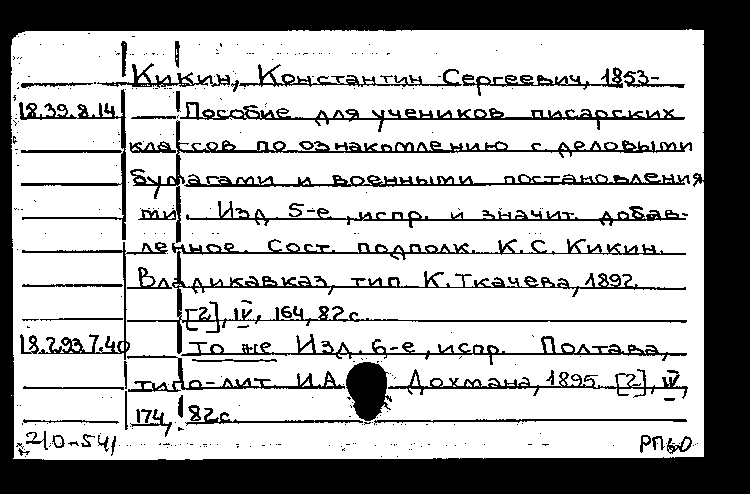 Кикин, Константин Сергеевич, 1853-
18.39.8.14 Пособие для учеников писарских
классов по ознакомлению с деловыми
бумагами и военными постановления
ми. Изд 5-е, испр. и значит. добав-
ленное. Сост. подполк. К.С. Кикин.
Владикавказ, тип. К.Ткачева, 1892.
[2], IV, 164, 82с.
18.293.7.40 То же Изд. 6-е, испр. Полтава,
типо-лит. И.А. Дохмана, 1895. [2], IV,
174, 82с.
210-541 РПБО